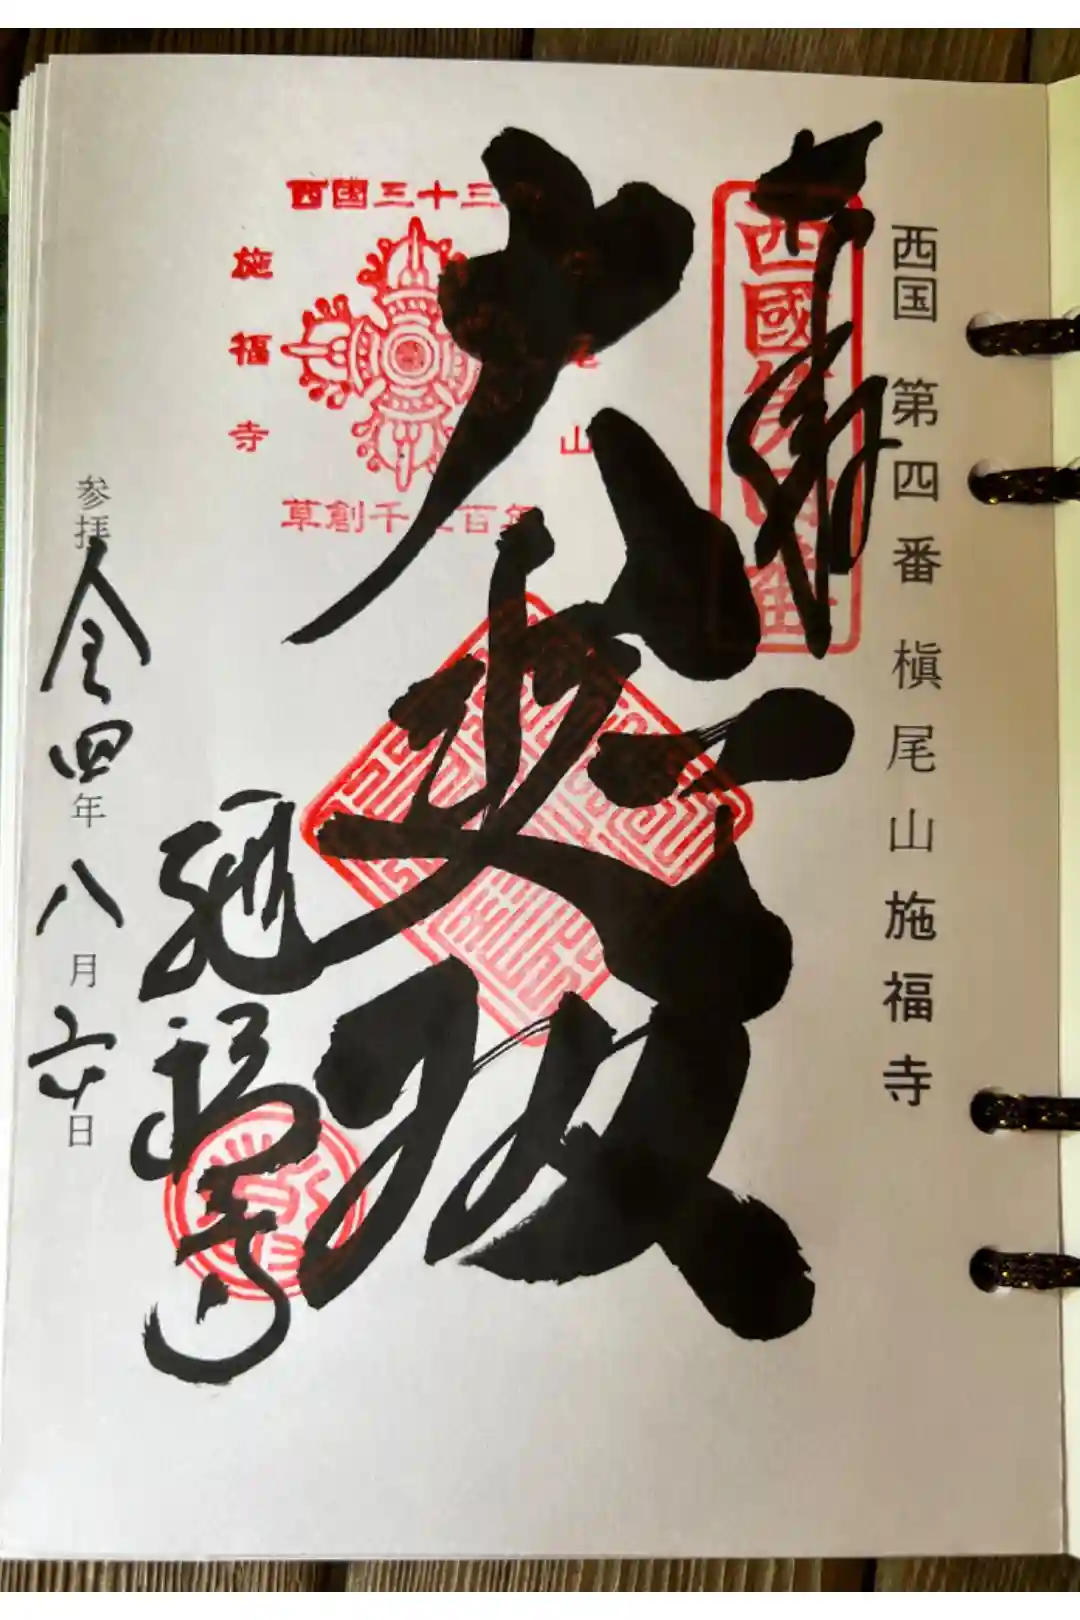 西国 第四番 槇尾山施福寺
奉拝
西國第四番
大悲殿
西國三十三
山
施福寺
草創千 百年
施福寺
参拝 令四年八月六日